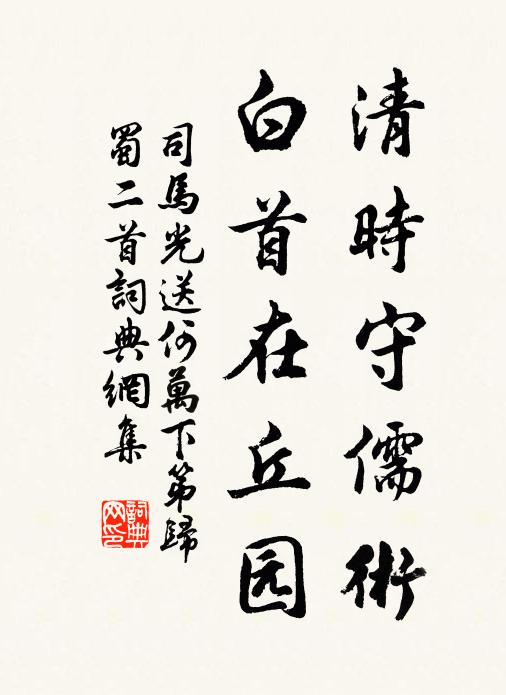 清時守儒術
白首在丘园
司馬光送何萬下第歸
蜀二首詞典網集
詞典
网印